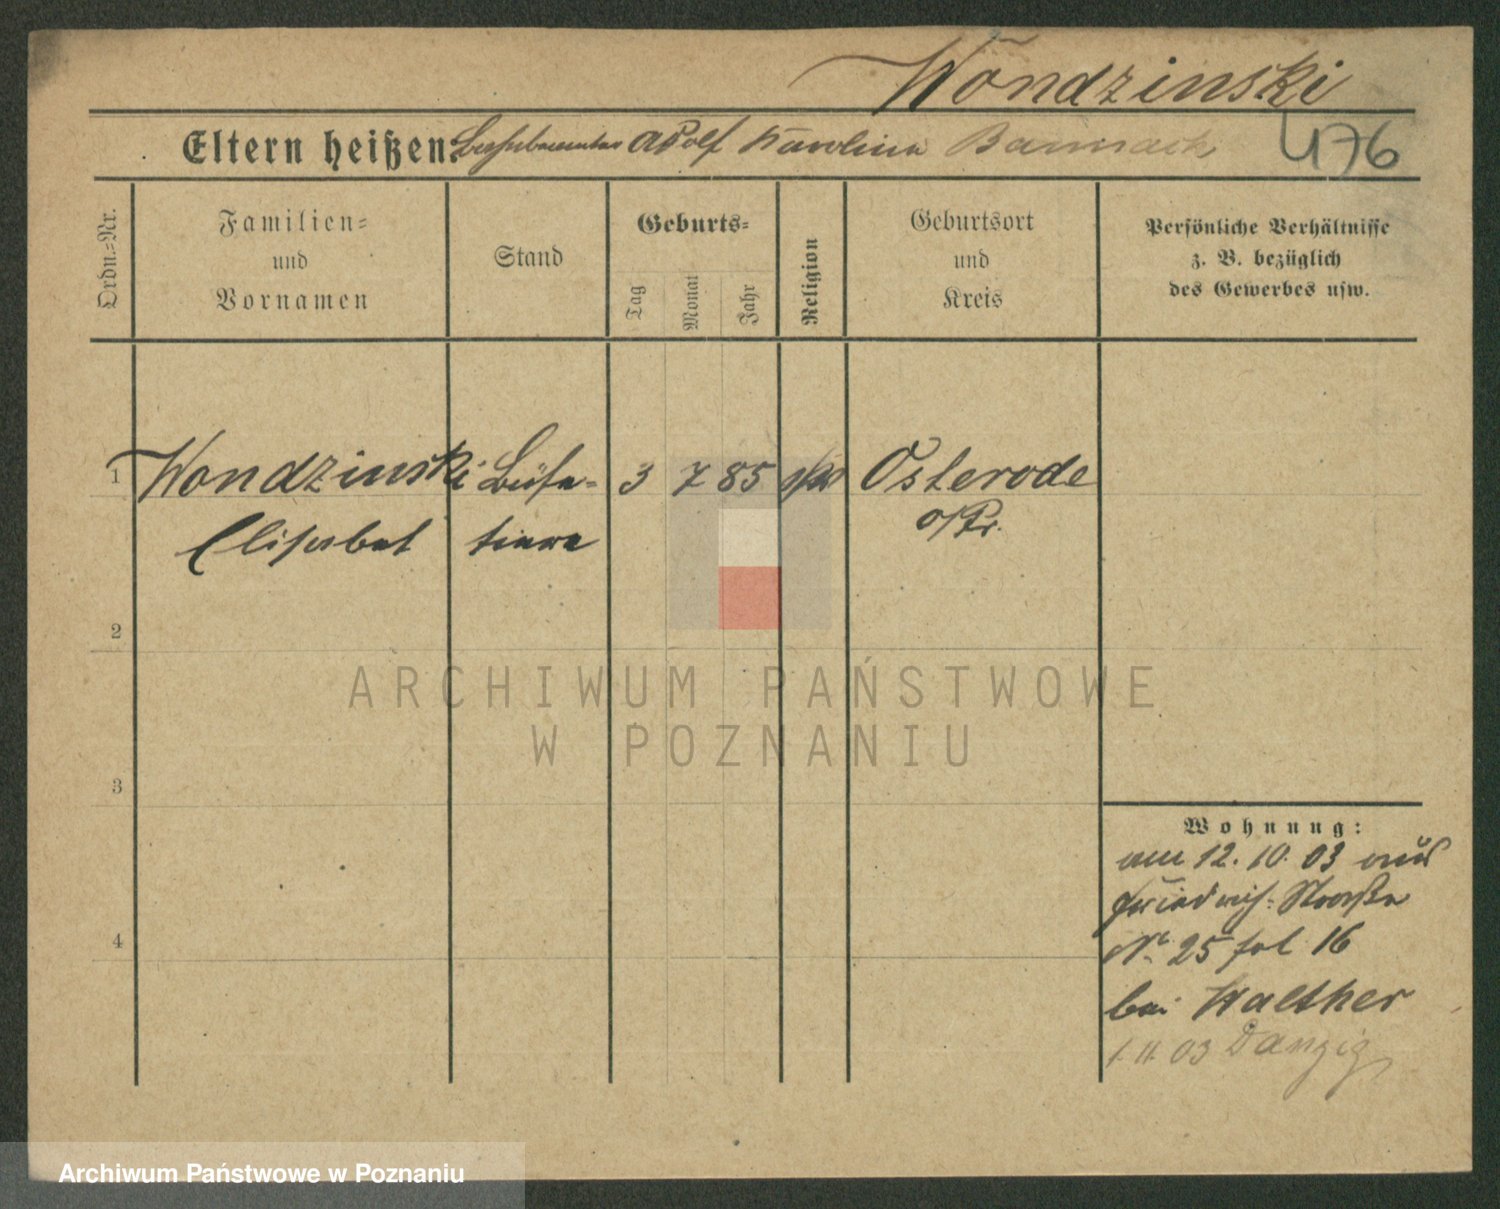 Wondzinski
Eltern heißen: Adolf Karolina
476
Ordn.=Nr.
Familien=
und
Vornamen
Stand
Geburts=
Tag
Monat
Jahr
Religion
Geburtsort
und
Kreis
Persönliche Verhältnisse
z. B. bezüglich
des Gewerbes usw.
1 Wondzinski Büfe= 3 7 85 Osterode
Elisabet tiere o/Pr.
2
3
4
ARCHIWUM PAŃSTWOWE
W POZNANIU
Wohnung:
am 12. 10. 03 aus
Friedrich-Straße
No 25 fol 16
bei Walther
1. 11. 03 Danzig
Archiwum Państwowe w Poznaniu